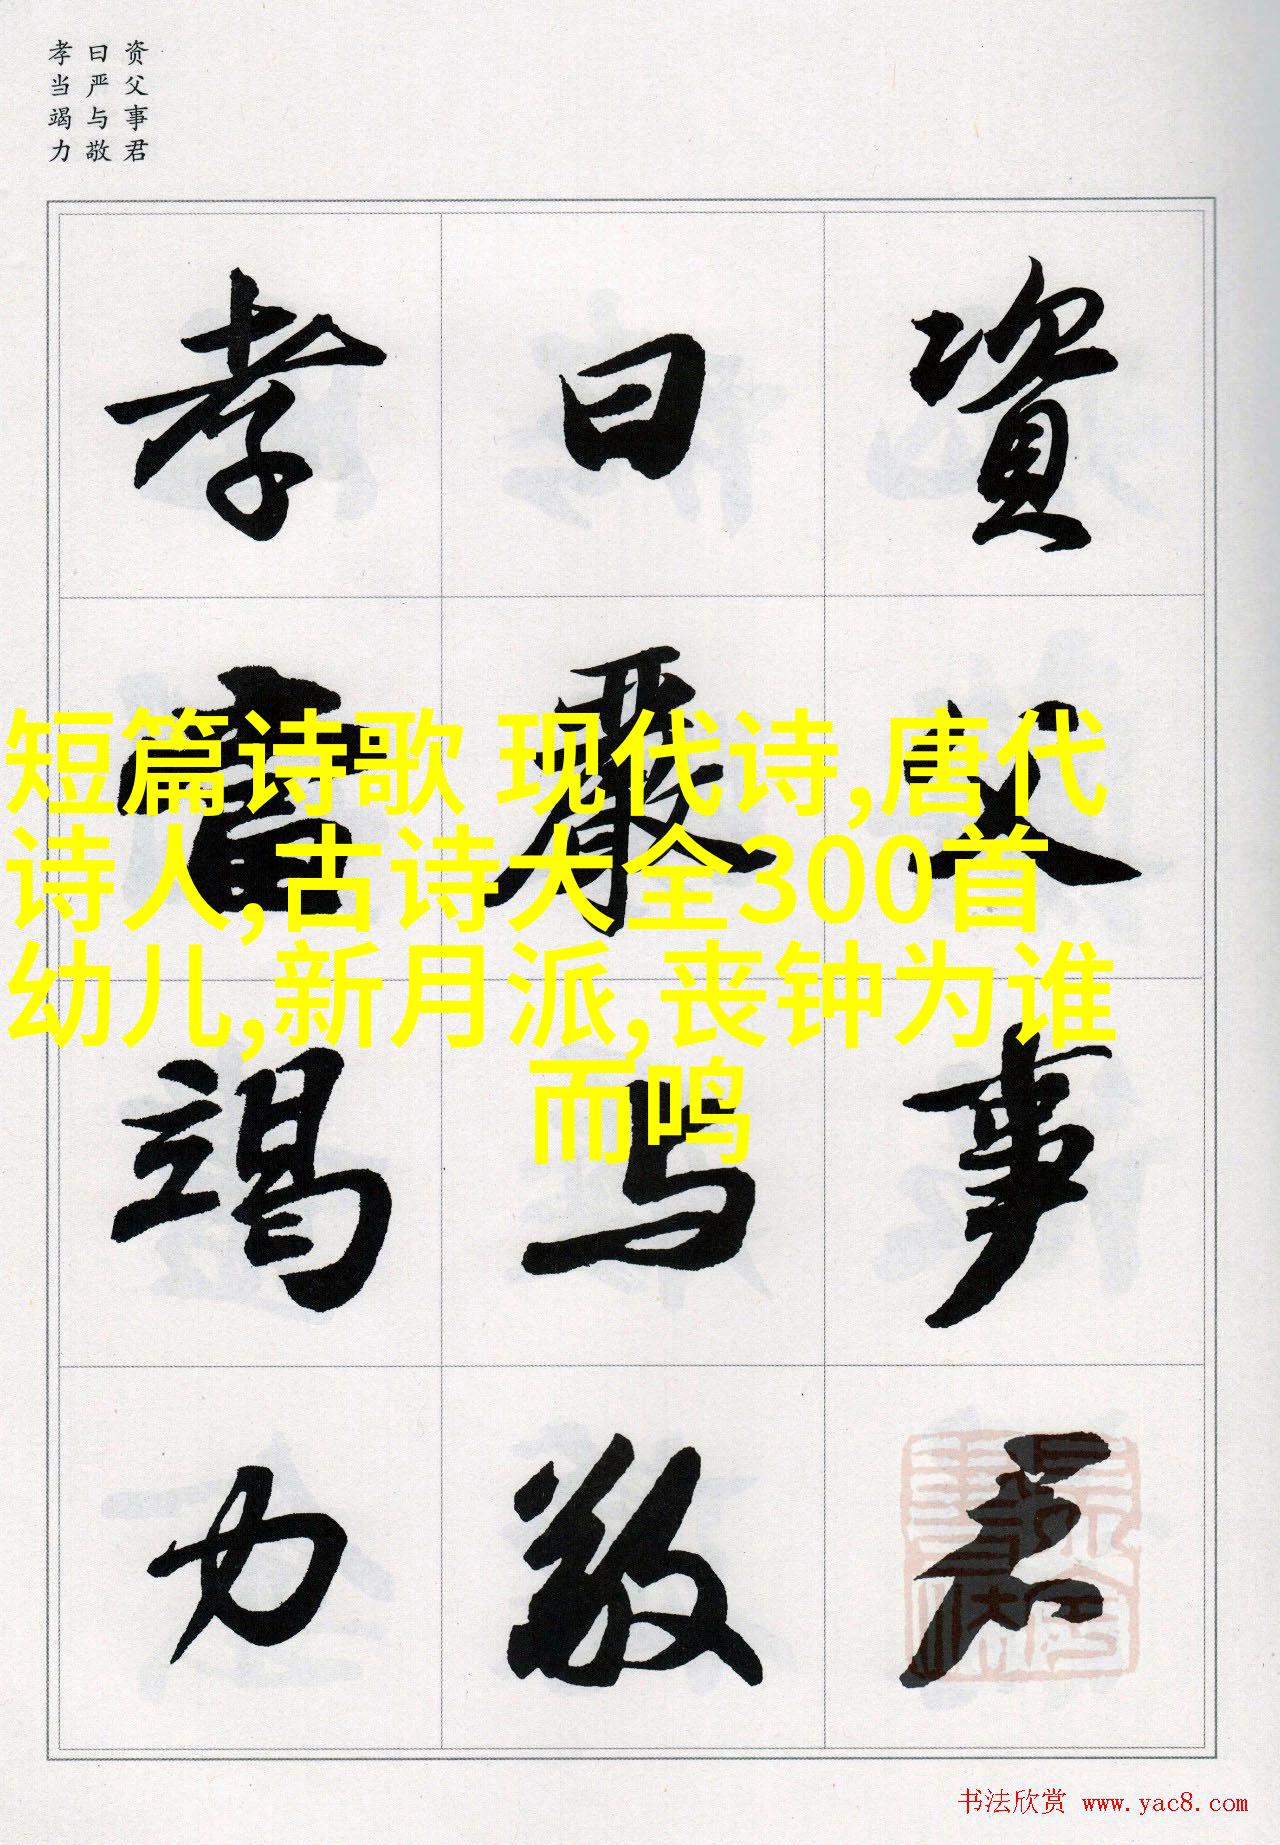 资父事君
曰严与敬
孝当竭力
資父事君
曰嚴与敬
孝當竭力
短篇诗歌 现代诗,唐代
诗人,古诗大全300首
幼儿,新月派,丧钟为谁
而鸣
书法欣赏 www.yac8.com